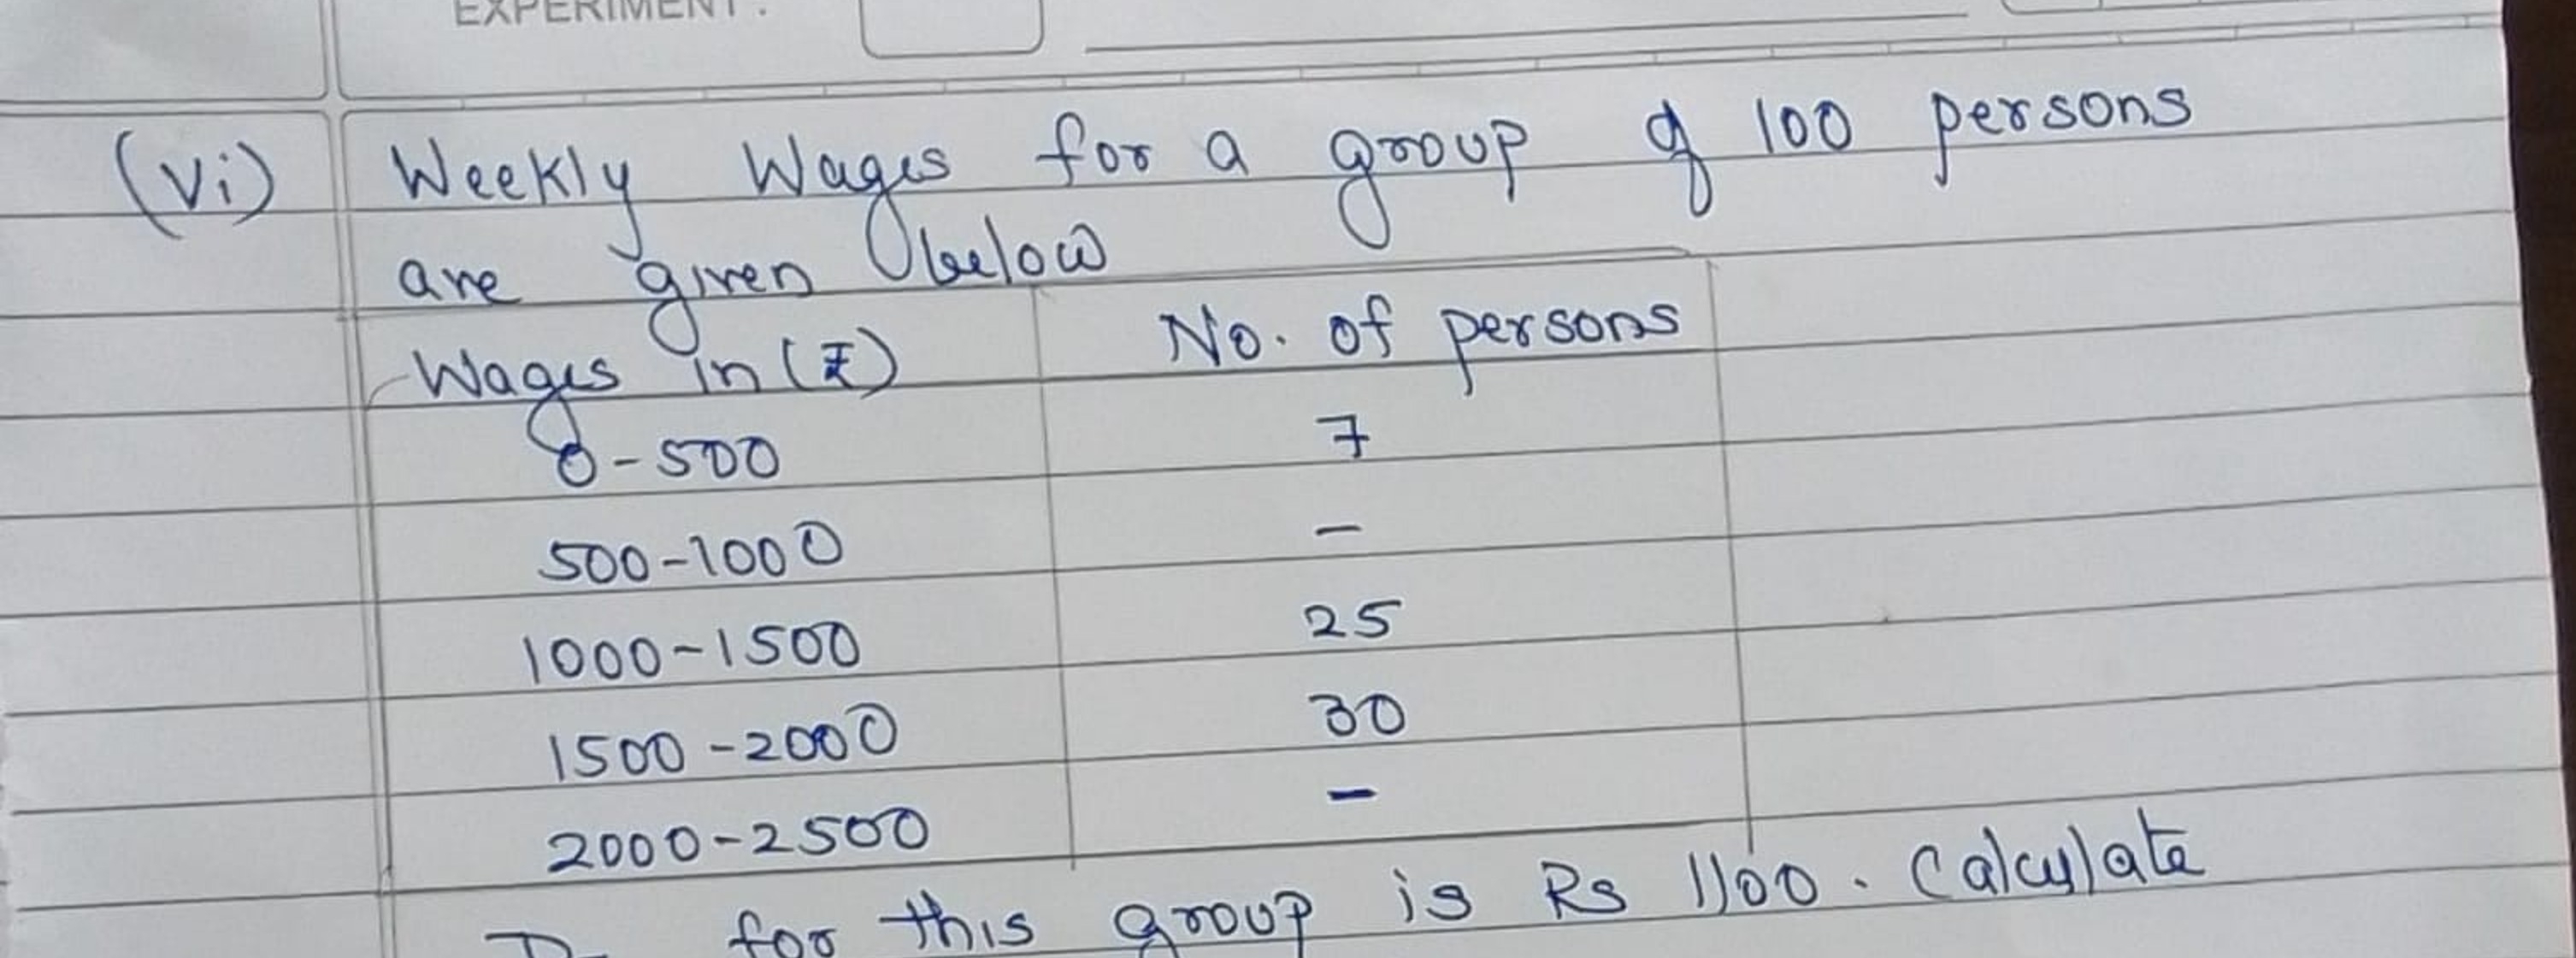 EXPERIMENT :
(vi) Weekly Wages for a group of 100 persons
are given below
Wages in (₹) No. of persons
0-500 7
500-1000 -
1000-1500 25
1500-2000 30
2000-2500 -
for this group is Rs 1100. Calculate